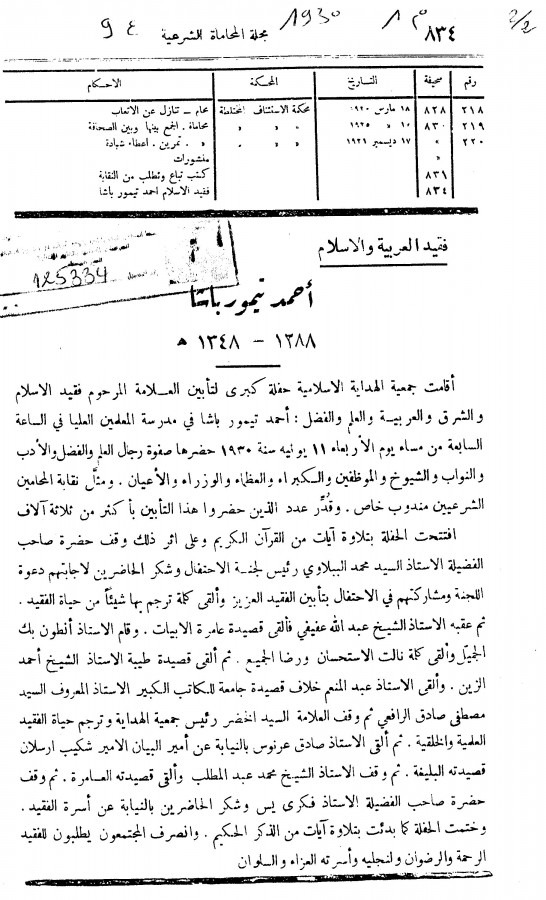 2/2
٨٣٤ ١ م ١٩٣٠ مجلة المحاماة الشرعية ع ٩
رقم صحيفة التاريخ المحكمة الاحكام
٢١٨ ٨٢٨ ١٨ مارس ١٩٢٠ محكمة الاستئناف المختلطة محام – تنازل عن الاتعاب
٢١٩ ٨٣٠ ١٠ » ١٩٢٥ » » محاماة . الجمع بينها وبين الصحافة
٢٢٠ » ١٧ ديسمبر ١٩٢١ » » » . تمرين . اعطاء شهادة
» منشورات
٨٣١ كتب تباع وتطلب من النقابة
٨٣٤ فقيد الاسلام احمد تيمور باشا
فقيد العربية والاسلام
125334
أحمد تيمور باشا
١٢٨٨ – ١٣٤٨ ھ
أقامت جمعية الهداية الاسلامية حفلة كبرى لتأبين العلامة المرحوم فقيد الاسلام
والشرق والعربية والعلم والفضل : أحمد تيمور باشا في مدرسة المعلمين العليا في الساعة
السابعة من مساء يوم الأربعاء ١١ يونيه سنة ١٩٣٠ حضرها صفوة رجال العلم والفضل والأدب
والنواب والشيوخ والموظفين والكبراء والعظماء والوزراء والأعيان . ومثَّل نقابة المحامين
الشرعيين مندوب خاص . وقُدِّر عدد الذين حضروا هذا التأبين بأكثر من ثلاثة آلاف
افتتحت الحفلة بتلاوة آيات من القرآن الكريم وعلى اثر ذلك وقف حضرة صاحب
الفضيلة الاستاذ السيد محمد الببلاوي رئيس لجنة الاحتفال وشكر الحاضرين لاجابتهم دعوة
اللجنة ومشاركتهم في الاحتفال بتأبين الفقيد العزيز وألقى كلمة ترجم بها شيئاً من حياة الفقيد .
ثم عقبه الاستاذ الشيخ عبد الله عفيفي فألقى قصيدة عامرة الابيات . وقام الاستاذ أنطون بك
الجميّل وألقى كلمة نالت الاستحسان ورضا الجميع . ثم ألقى قصيدة طيبة الاستاذ الشيخ أحمد
الزين . وألقى الاستاذ عبد المنعم خلاف قصيدة جامعة للكاتب الكبير الاستاذ المعروف السيد
مصطفى صادق الرافعي ثم وقف العلامة السيد الخضر رئيس جمعية الهداية وترجم حياة الفقيد
العلمية والخلقية . ثم ألقى الاستاذ صادق عرنوس بالنيابة عن أمير البيان الامير شكيب ارسلان
قصيدته البليغة . ثم وقف الاستاذ الشيخ محمد عبد المطلب وألقى قصيدته العامرة . ثم وقف
حضرة صاحب الفضيلة الاستاذ فكرى يس وشكر الحاضرين بالنيابة عن أسرة الفقيد .
وختمت الحفلة كما بدئت بتلاوة آيات من الذكر الحكيم . وانصرف المجتمعون يطلبون للفقيد
الرحمة والرضوان ولنجليه وأسرته العزاء والسلوان